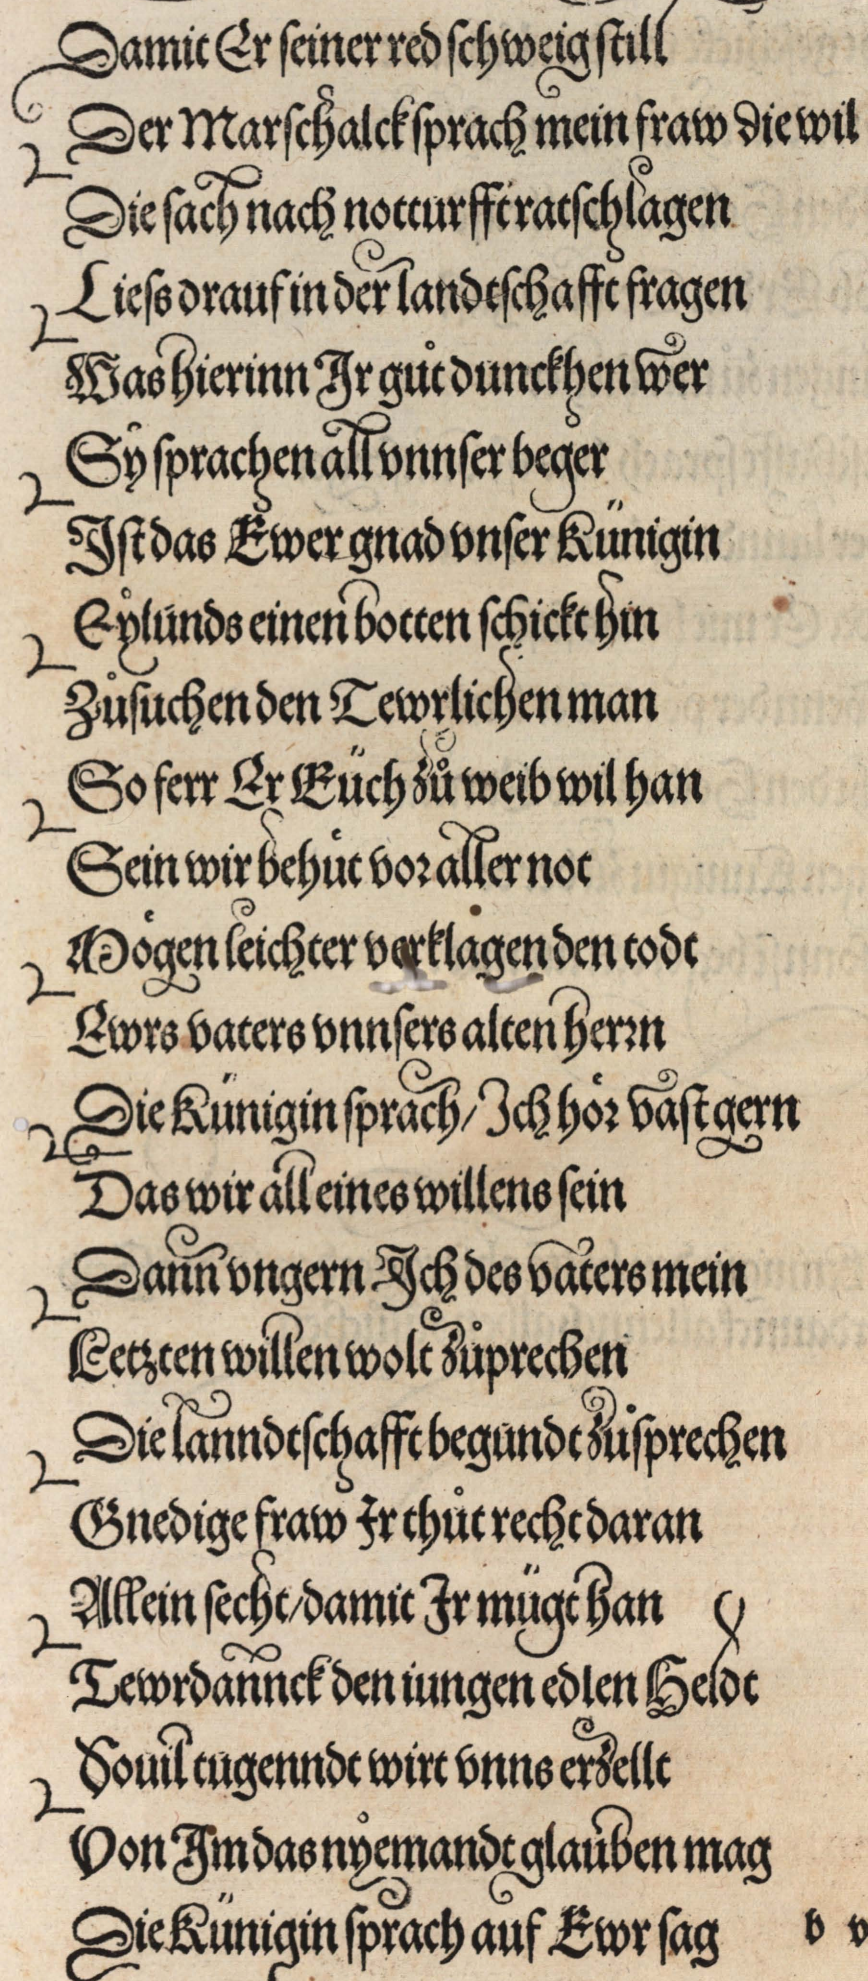 Damit Er seiner red schweig still
Der Marschalck sprach mein fraw die wil
Die sach nach notturfft ratschlagen
Liess drauf in der landtschafft fragen
Was hierinn Ir gůt dunckhen wer
Sy sprachen all vnnser beger
Ist das Ewer gnad vnser Künigin
Eylünds einen botten schickt hin
Zůsuchen den Tewrlichen man
So ferr Er Eüch zů weib wil han
Sein wir behüt vor aller not
Mögen leichter verklagen den todt
Ewrs vaters vnnsers alten herrn
Die Künigin sprach/ Ich hör vast gern
Das wir all eines willens sein
Dann vngern Ich des vaters mein
Letzten willen wolt zůprechen
Die lanndtschafft begundt zůsprechen
Gnedige fraw Ir thůt recht daran
Allein secht/damit Ir mügt han
Tewrdannck den iungen edlen Heldt
Souil tugenndt wirt vnns erzellt
Von Im das nyemandt glauben mag
Die Künigin sprach auf Ewr sag b v